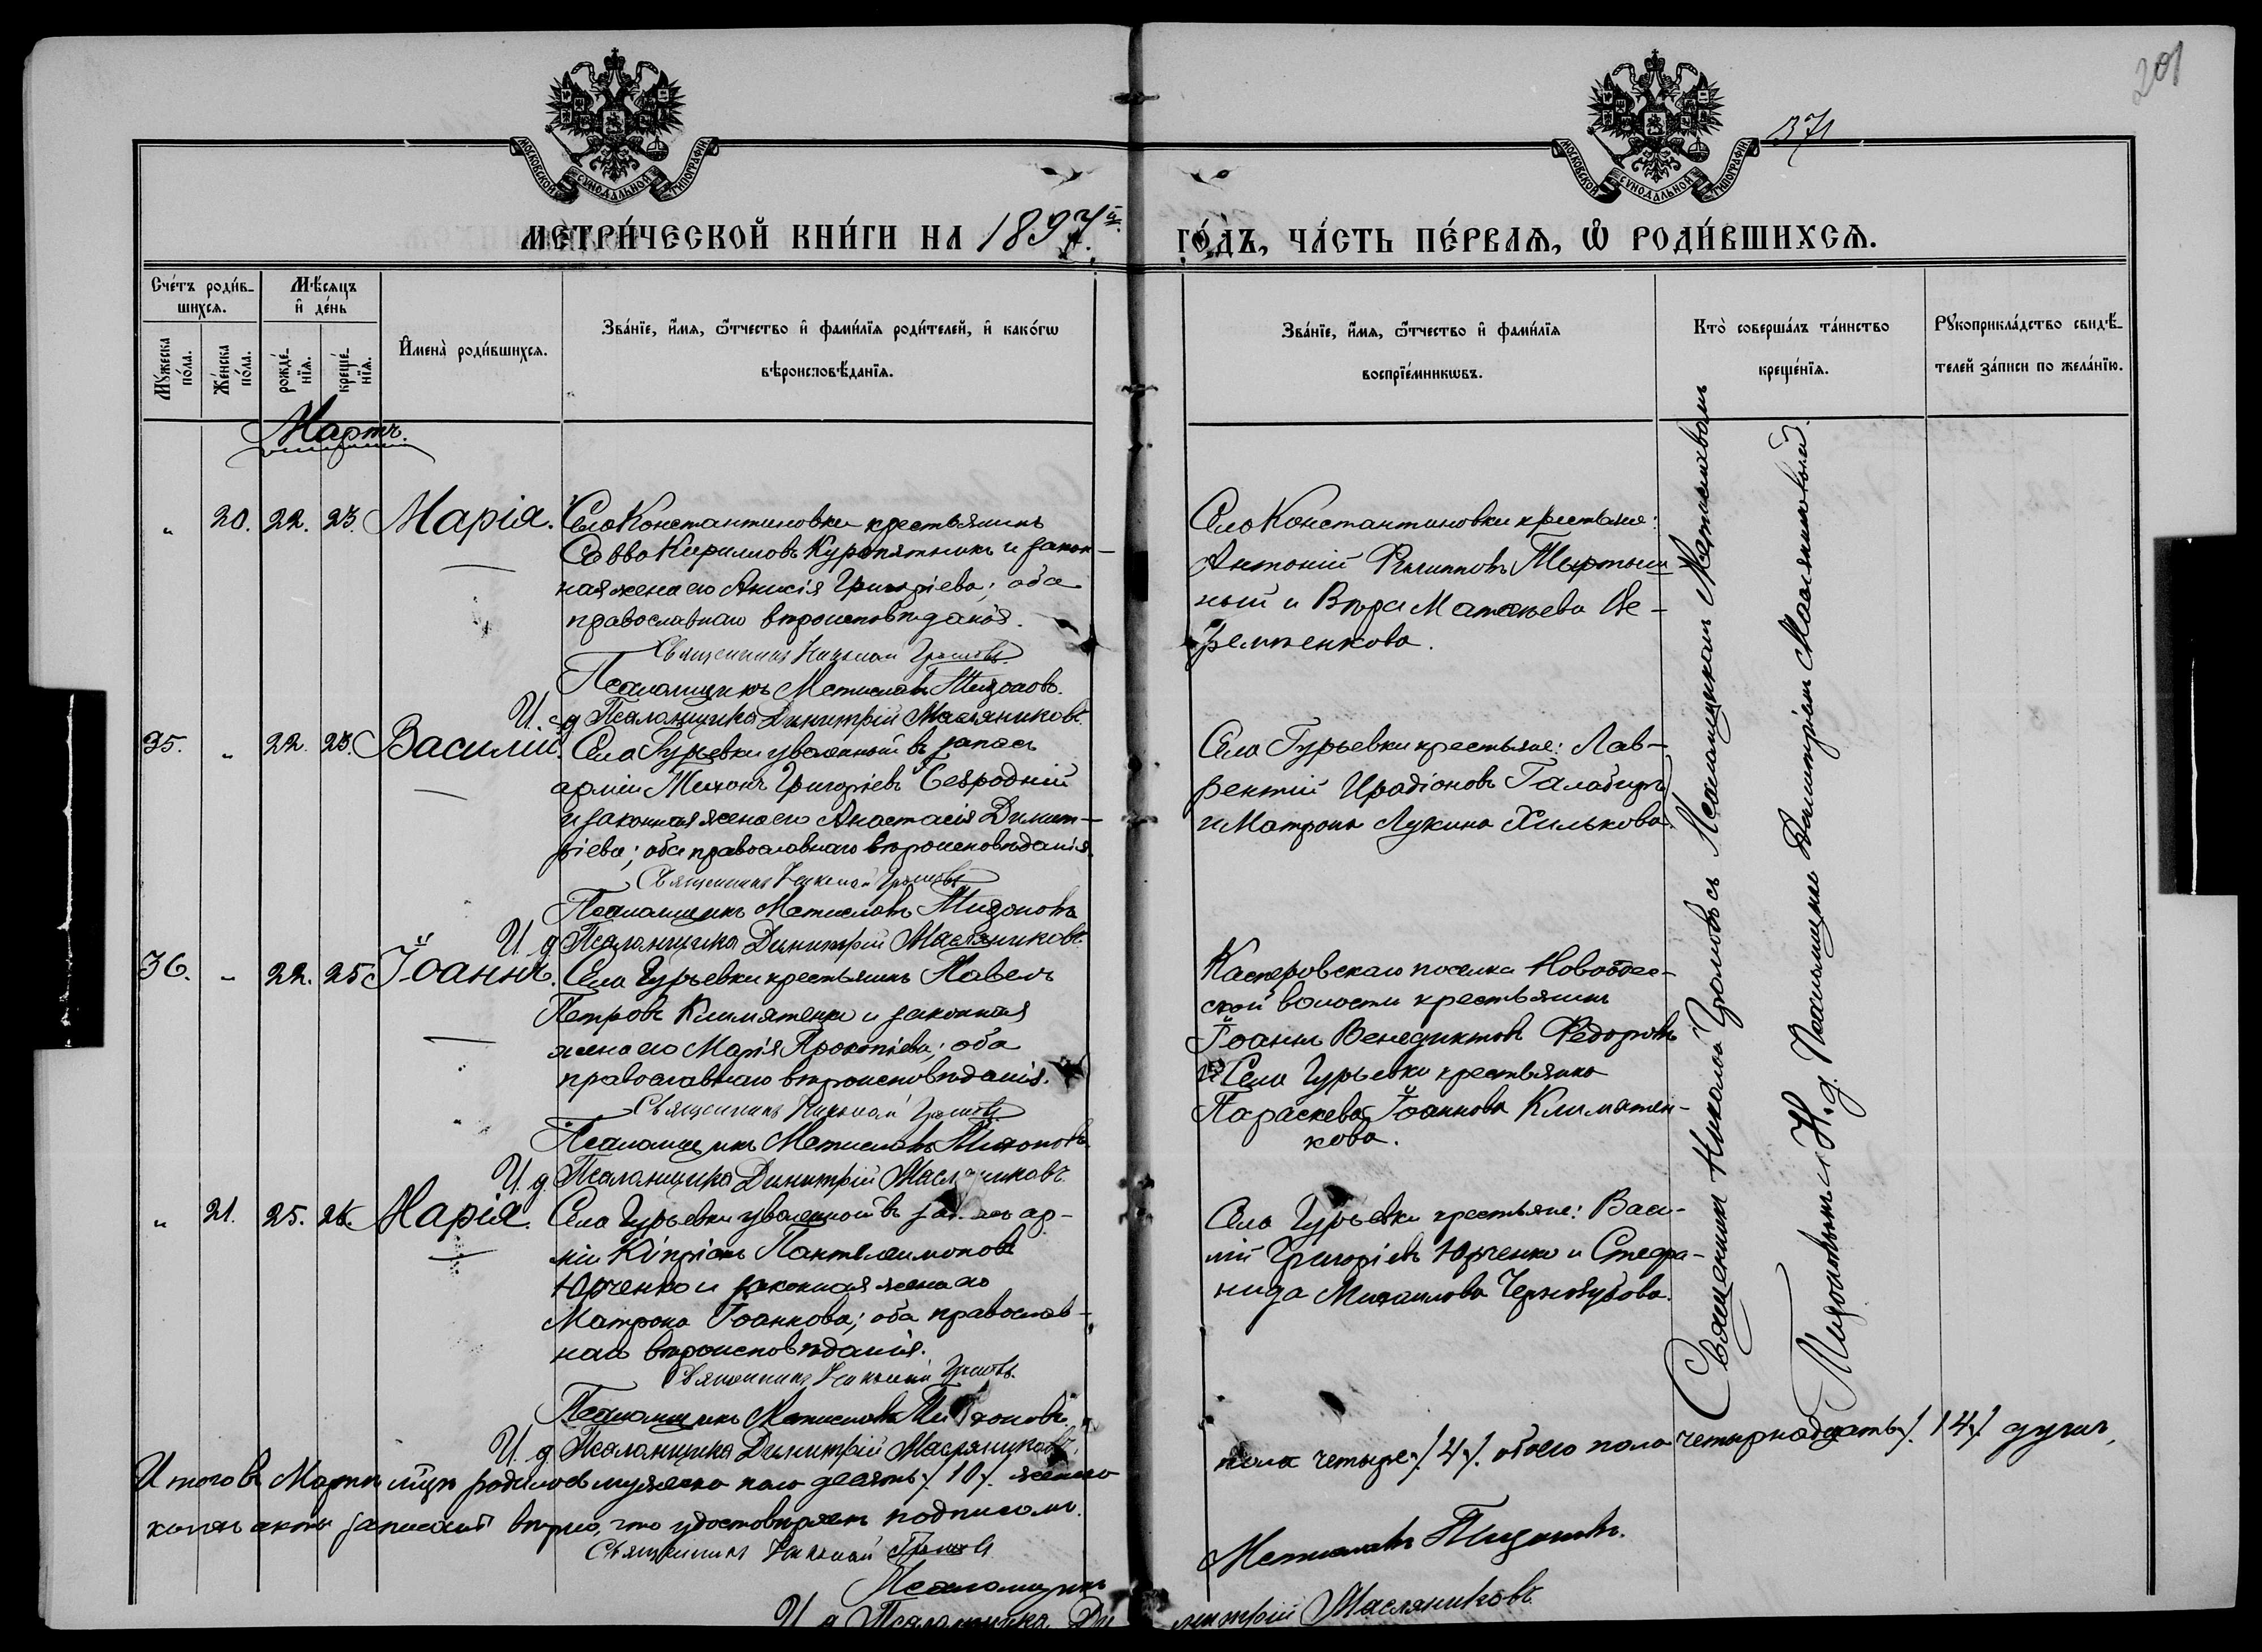 201
371
МОСКОВСКОЙ СѴНОДАЛЬНОЙ ТИПОГРАФІИ
МОСКОВСКОЙ СѴНОДАЛЬНОЙ ТИПОГРАФІИ
МЕТРИ́ЧЕСКОЙ КНИ́ГИ НА 1897й.
ГО́ДЪ, ЧА́СТЬ ПЕ́РВАѦ, Ѡ РОДИ́ВШИХСѦ.
Сче́тъ роди́в-
шихсѧ.
Мѣ́сѧцъ
и де́нь
Мꙋ́жеска по́ла.
Же́нска по́ла.
рожде́-нїѧ.
креще́-нїѧ.
Имена̀ роди́вшихсѧ.
Зва́нїе, и́мѧ, ѻ́тчество и фами́лїѧ роди́телей, и како́гѡ
вѣроисповѣ́данїѧ.
Зва́нїе, и́мѧ, ѻ́тчество и фами́лїѧ
воспрїе́мникѡвъ.
Кто̀ соверша́лъ та́инство
креще́нїѧ.
Рꙋкоприкла́дство свидѣ́-
телей за́писи по жела́нїю.
Мартъ.
„ 20. 22. 23. Марія. Села Константиновки крестьянинъ
Савва Кириловъ Куропятникъ и закон-
ная жена его Анисія Григоріева; оба
православнаго вѣроисповѣданія.
Священникъ Николай Громовъ
Псаломщикъ Мстиславъ Тихоновъ.
И. д Псаломщика Димитрій Масляниковъ.
Села Константиновки крестьяне:
Антоній Филипповъ
ный и Вѣра Матѳеева Ве-
ременкова.
35. „ 22. 23. Василій. Села Гурьевки уволенный въ запасъ
арміи Тихонъ Григорьевъ Безродній
и законная жена его Анастасія Димит-
ріева; оба православнаго вѣроисповѣданія.
Священникъ Николай Громовъ
Псаломщикъ Мстиславъ Тихоновъ
И. д Псаломщика Димитрій Масляниковъ.
Села Гурьевки крестьяне: Лав-
рентій Иродіоновъ
и Матрона Лукина Хилькова.
36. „ 22. 25 Іоаннъ. Села Гурьевки крестьянинъ Павелъ
Петровъ Климятенко и законная
жена его Марія Прокопіева; оба
православнаго вѣроисповѣданія.
Священникъ Николай Громовъ
Псаломщикъ Мстиславъ Тихоновъ
И. д. Псаломщика Димитрій Масляниковъ.
поселка Новоодес-
ской волости крестьянинъ
Іоаннъ Венедиктовъ Федоровъ
и Села Гурьевки крестьянка
Параскева Іоаннова Климатен-
кова.
„ 21. 25. 26. Марія. Села Гурьевки уволенный въ запасъ ар-
міи Кипріанъ Пантелеимоновъ
Юрченко и законная жена его
Матрона Іоаннова; оба православ-
наго вѣроисповѣданія.
Священникъ Николай Громовъ.
Псаломщикъ Мстиславъ Тихоновъ.
И. д Псаломщика Димитрій Масляниковъ.
Села Гурьевки крестьяне: Васи-
лій Григоріевъ Юрченко и Стефа-
нида Михаилова Чернозубова.
Священникъ Николай Громовъ съ Псаломщикомъ Мстиславомъ
Тихоновымъ и И. д. Псаломщика Димитріемъ Масляниковымъ.
Итого въ Мартѣ мцѣ родилось мужеска пола десять /.10/. женска
пола четыре /.4/. обоего пола четырнадцать /.14/. душъ,
акты записаны вѣрно, что удостовѣряемъ подписомъ.
Священникъ Николай Громовъ
Псаломщикъ Мстиславъ Тихоновъ.
И д Псаломщика Димитрій Масляниковъ